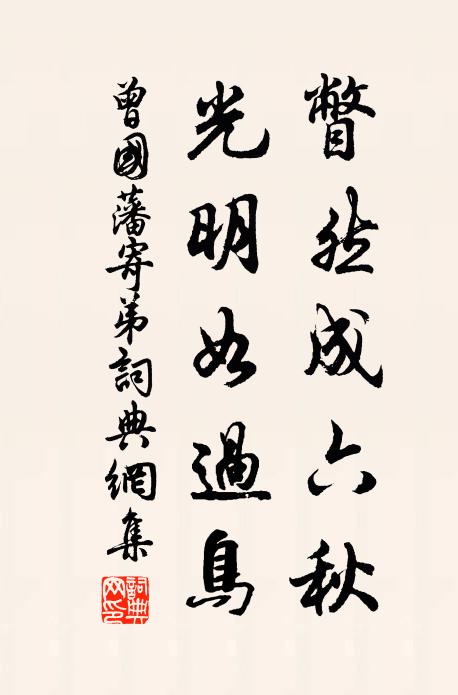 瞥然成六秋
光明如過鳥
曾國藩寄弟詞典網集
詞典網印